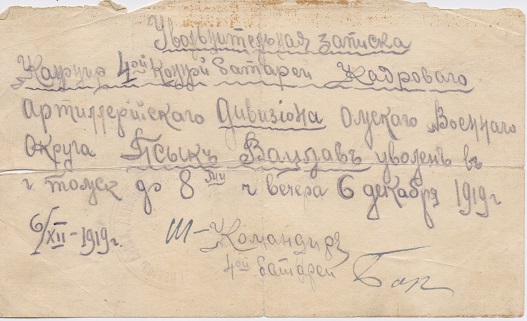 Увольнительная записка
Канонир 4ой Конной батареи Кадроваго
Артиллерійскаго Дивизіона Омскаго Военнаго
Округа Псыкъ Вацлавъ уволенъ въ
г Томск до 8ми ч вечера 6 декабря 1919г
6/XII-1919г. Командиръ
4ой батареи